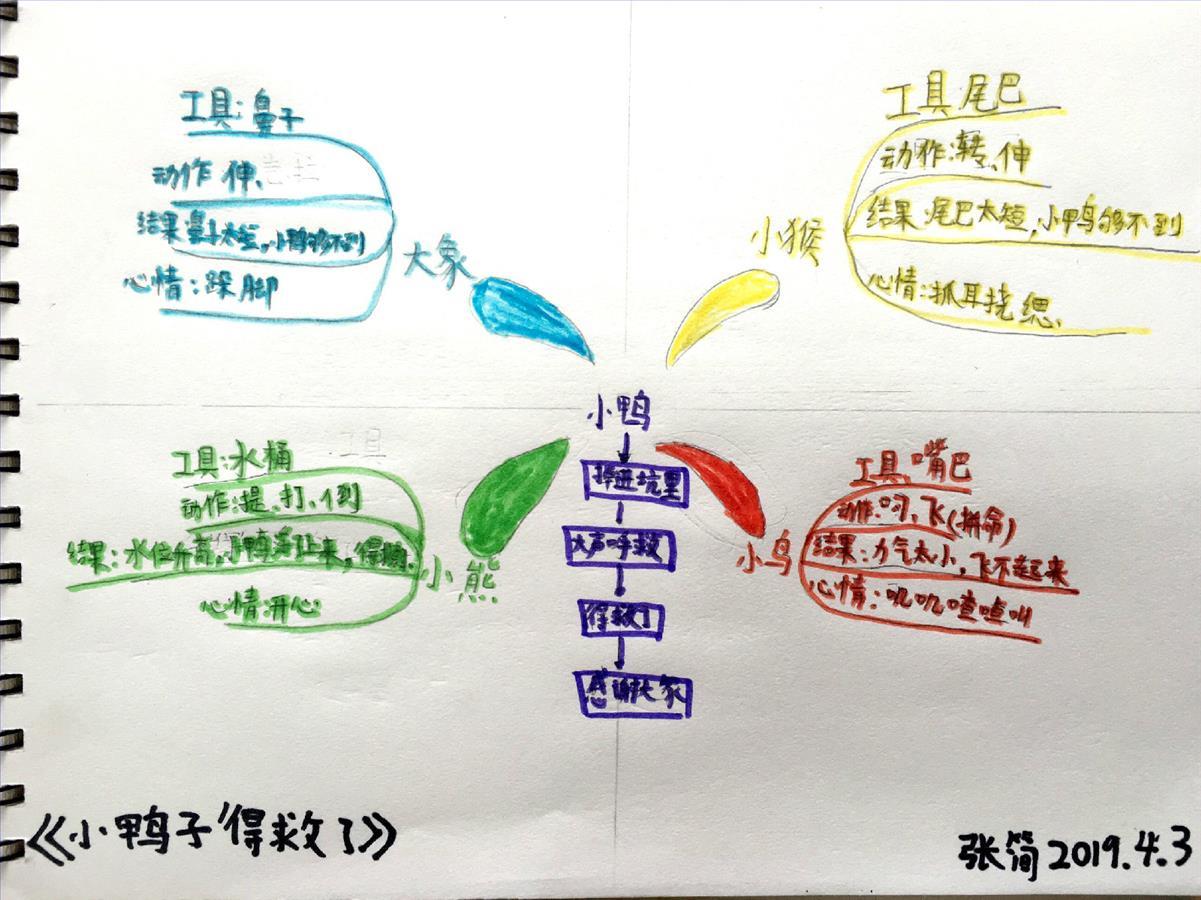 工具:鼻子
动作 伸、
结果 鼻子太短,小鸭够不到
心情:跺脚
大象
工具 尾巴
动作:转、伸
结果:尾巴太短,小鸭够不到
心情:抓耳挠
小猴
小鸭
掉进坑里
大声呼救
得救了
感谢大家
工具:水桶
动作:提、打、倒
结果:水位升高,小鸭浮上来,得救
心情:开心
小熊
工具 嘴巴
动作:叼、飞(拼命)
结果:力气太小,飞不起来
心情:叽叽喳喳叫
小鸟
《小鸭子得救了》
张简 2019.4.3